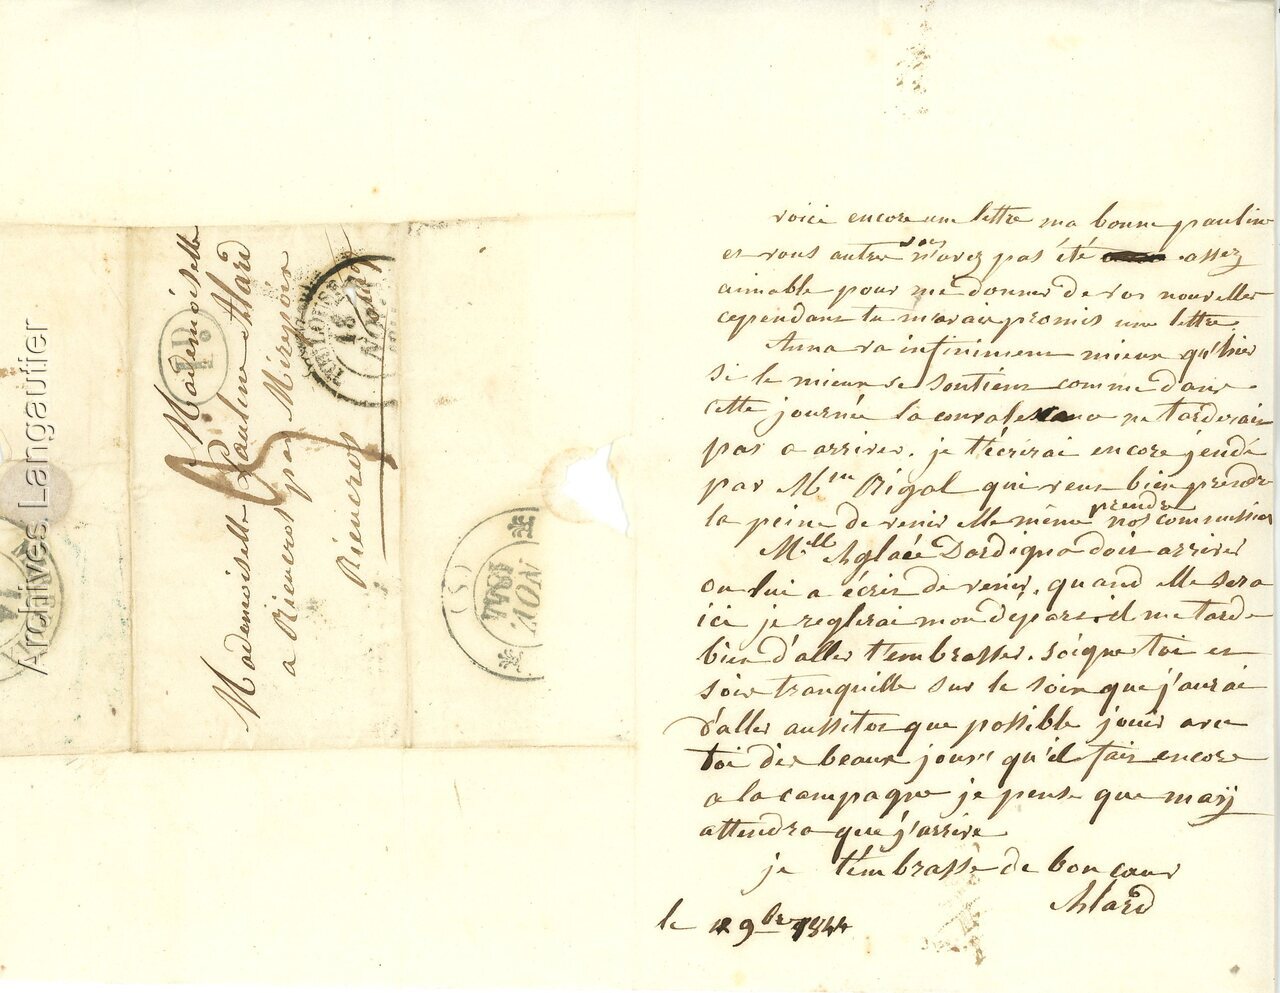 Archives Langautier
Mademoiselle
Mademoiselle Pauline Alard
a Rieucros par Mirepoix
Rieucros
1D
TOULOUSE
18
NOV
NOV
1844
(5)
voici encore une lettre ma bonne pauline
et vous autres vous n'avez pas été assez
aimable pour me donner de vos nouvelles
cependant tu m'avais promis une lettre
Anna va infiniment mieux qu'hier
si le mieux se soutient comme dans
cette journée la ne tarderait
pas a arriver. je t'écrirai encore jeudi
par Mme Rigal qui veut bien prendre
la peine de venir elle même prendre nos commissions
Melle Aglaée Dardigna doit arriver
on lui a écrit de venir, quand elle sera
ici je reglerai mon depart. il me tarde
bien d'aller t'embrasser. soigne toi et
sois tranquille sur le soin que j'aurai
d'aller aussitot que possible jouir avec
toi des beaux jours qu'il fait encore
a la campagne je pense que
attendra que j'arrive
je t'embrasse de bon coeur
Alard
le 9bre 1844